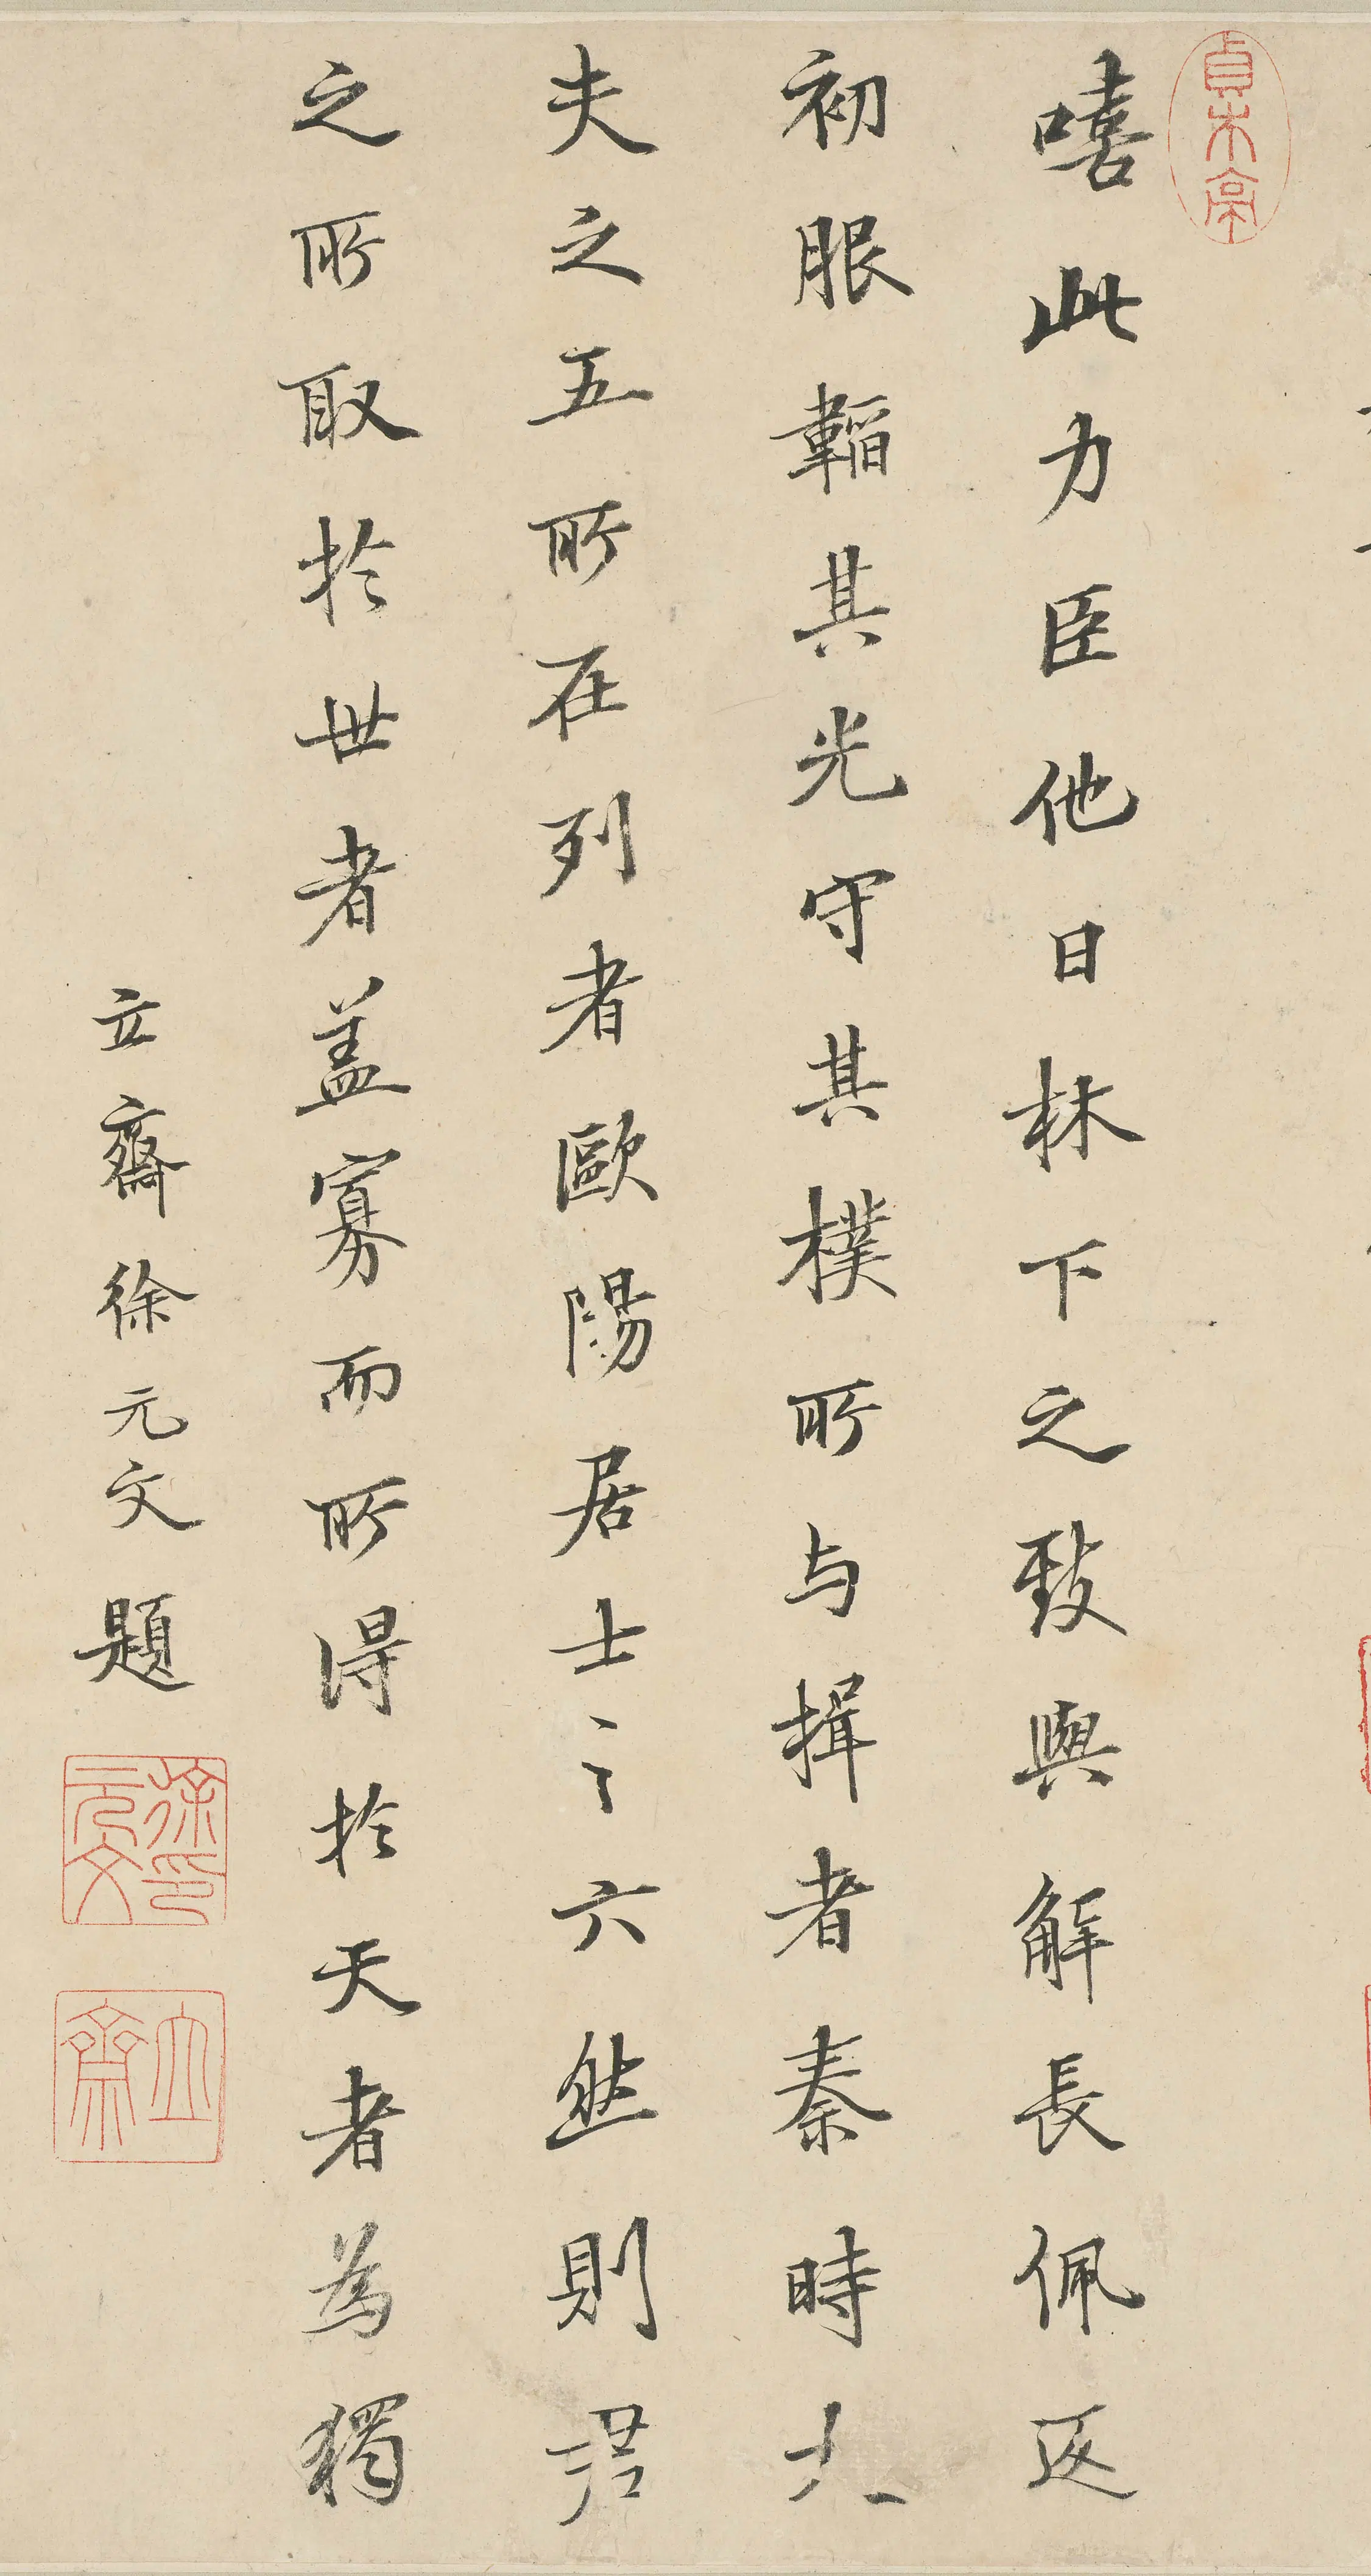 嘻此力臣他日林下之致與解長佩返
初服韜其光守其樸所与揖者秦時大
夫之五所在列者歐陽居士之六然則君
之所取於世者盖寡而所得於天者為獨
立齋徐元文題
徐元文印
立齋